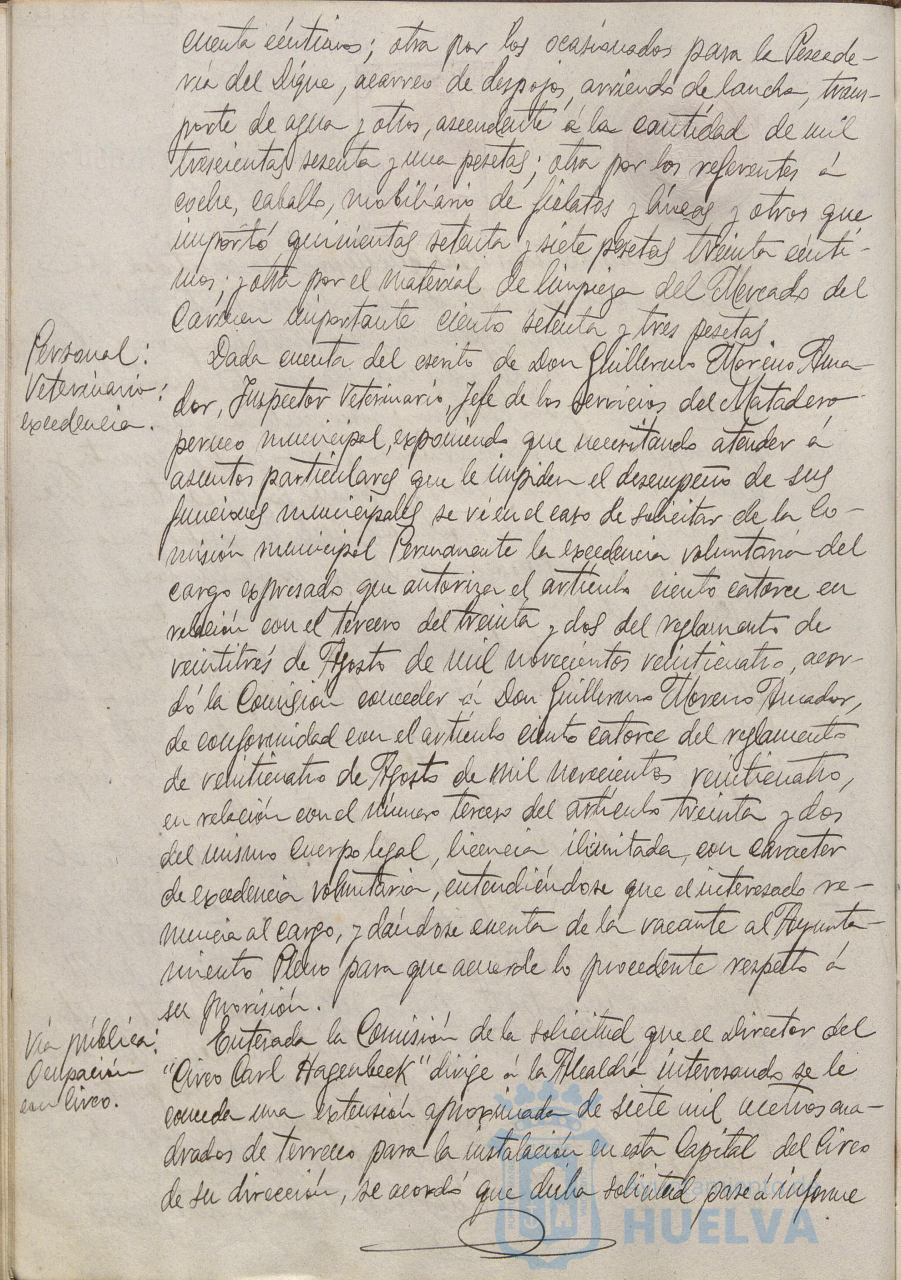 cuenta céntimos; otra por los ocasionados para la Pescade-
ría del Dique, acarreo de despojos, arriendo de lancha, trans-
porte de agua y otros, ascendente á la cantidad de mil
trescientas sesenta y una pesetas; otra por los referentes á
coche, caballo, mobiliario de fielatos y líneas y otros que
importó quinientas setenta y siete pesetas treinta cénti-
mos; y otra por el material de limpieza del Mercado del
Carmen importante ciento setenta y tres pesetas
Personal:
Veterinario:
excedencia.
Dada cuenta del escrito de Don Guillermo Moreno Ama-
dor, Inspector Veterinario, Jefe de los servicios del Matadero
municipal, exponiendo que necesitando atender á
asuntos particulares que le impiden el desempeño de sus
funciones municipales se vé en el caso de solicitar de la Co-
misión municipal Permanente la excedencia voluntaria del
cargo expresado que autoriza el artículo ciento catorce en
relación con el tercero del treinta y dos del reglamento de
veintitrés de Agosto de mil novecientos veinticuatro, acor-
dó la Comisión conceder á Don Guillermo Moreno Amador,
de conformidad con el artículo ciento catorce del reglamento
de veinticuatro de Agosto de mil novecientos veinticuatro,
en relación con el número tercero del artículo treinta y dos
del mismo Cuerpo legal, licencia ilimitada, con caracter
de excedencia voluntaria, entendiéndose que el interesado re-
nuncia al cargo, y dándose cuenta de la vacante al Ayunta-
miento Pleno para que acuerde lo procedente respecto á
su provisión.
Vía pública:
Ocupación
con Circo.
Enterada la Comisión de la solicitud que el Director del
"Circo Carl Hagenbeck" dirige á la Alcaldía interesando se le
conceda una extensión aproximada de siete mil metros cua-
drados de terreno para la instalación en esta Capital del Circo
de su dirección, se acordó que dicha solicitud pase á informe
HUELVA